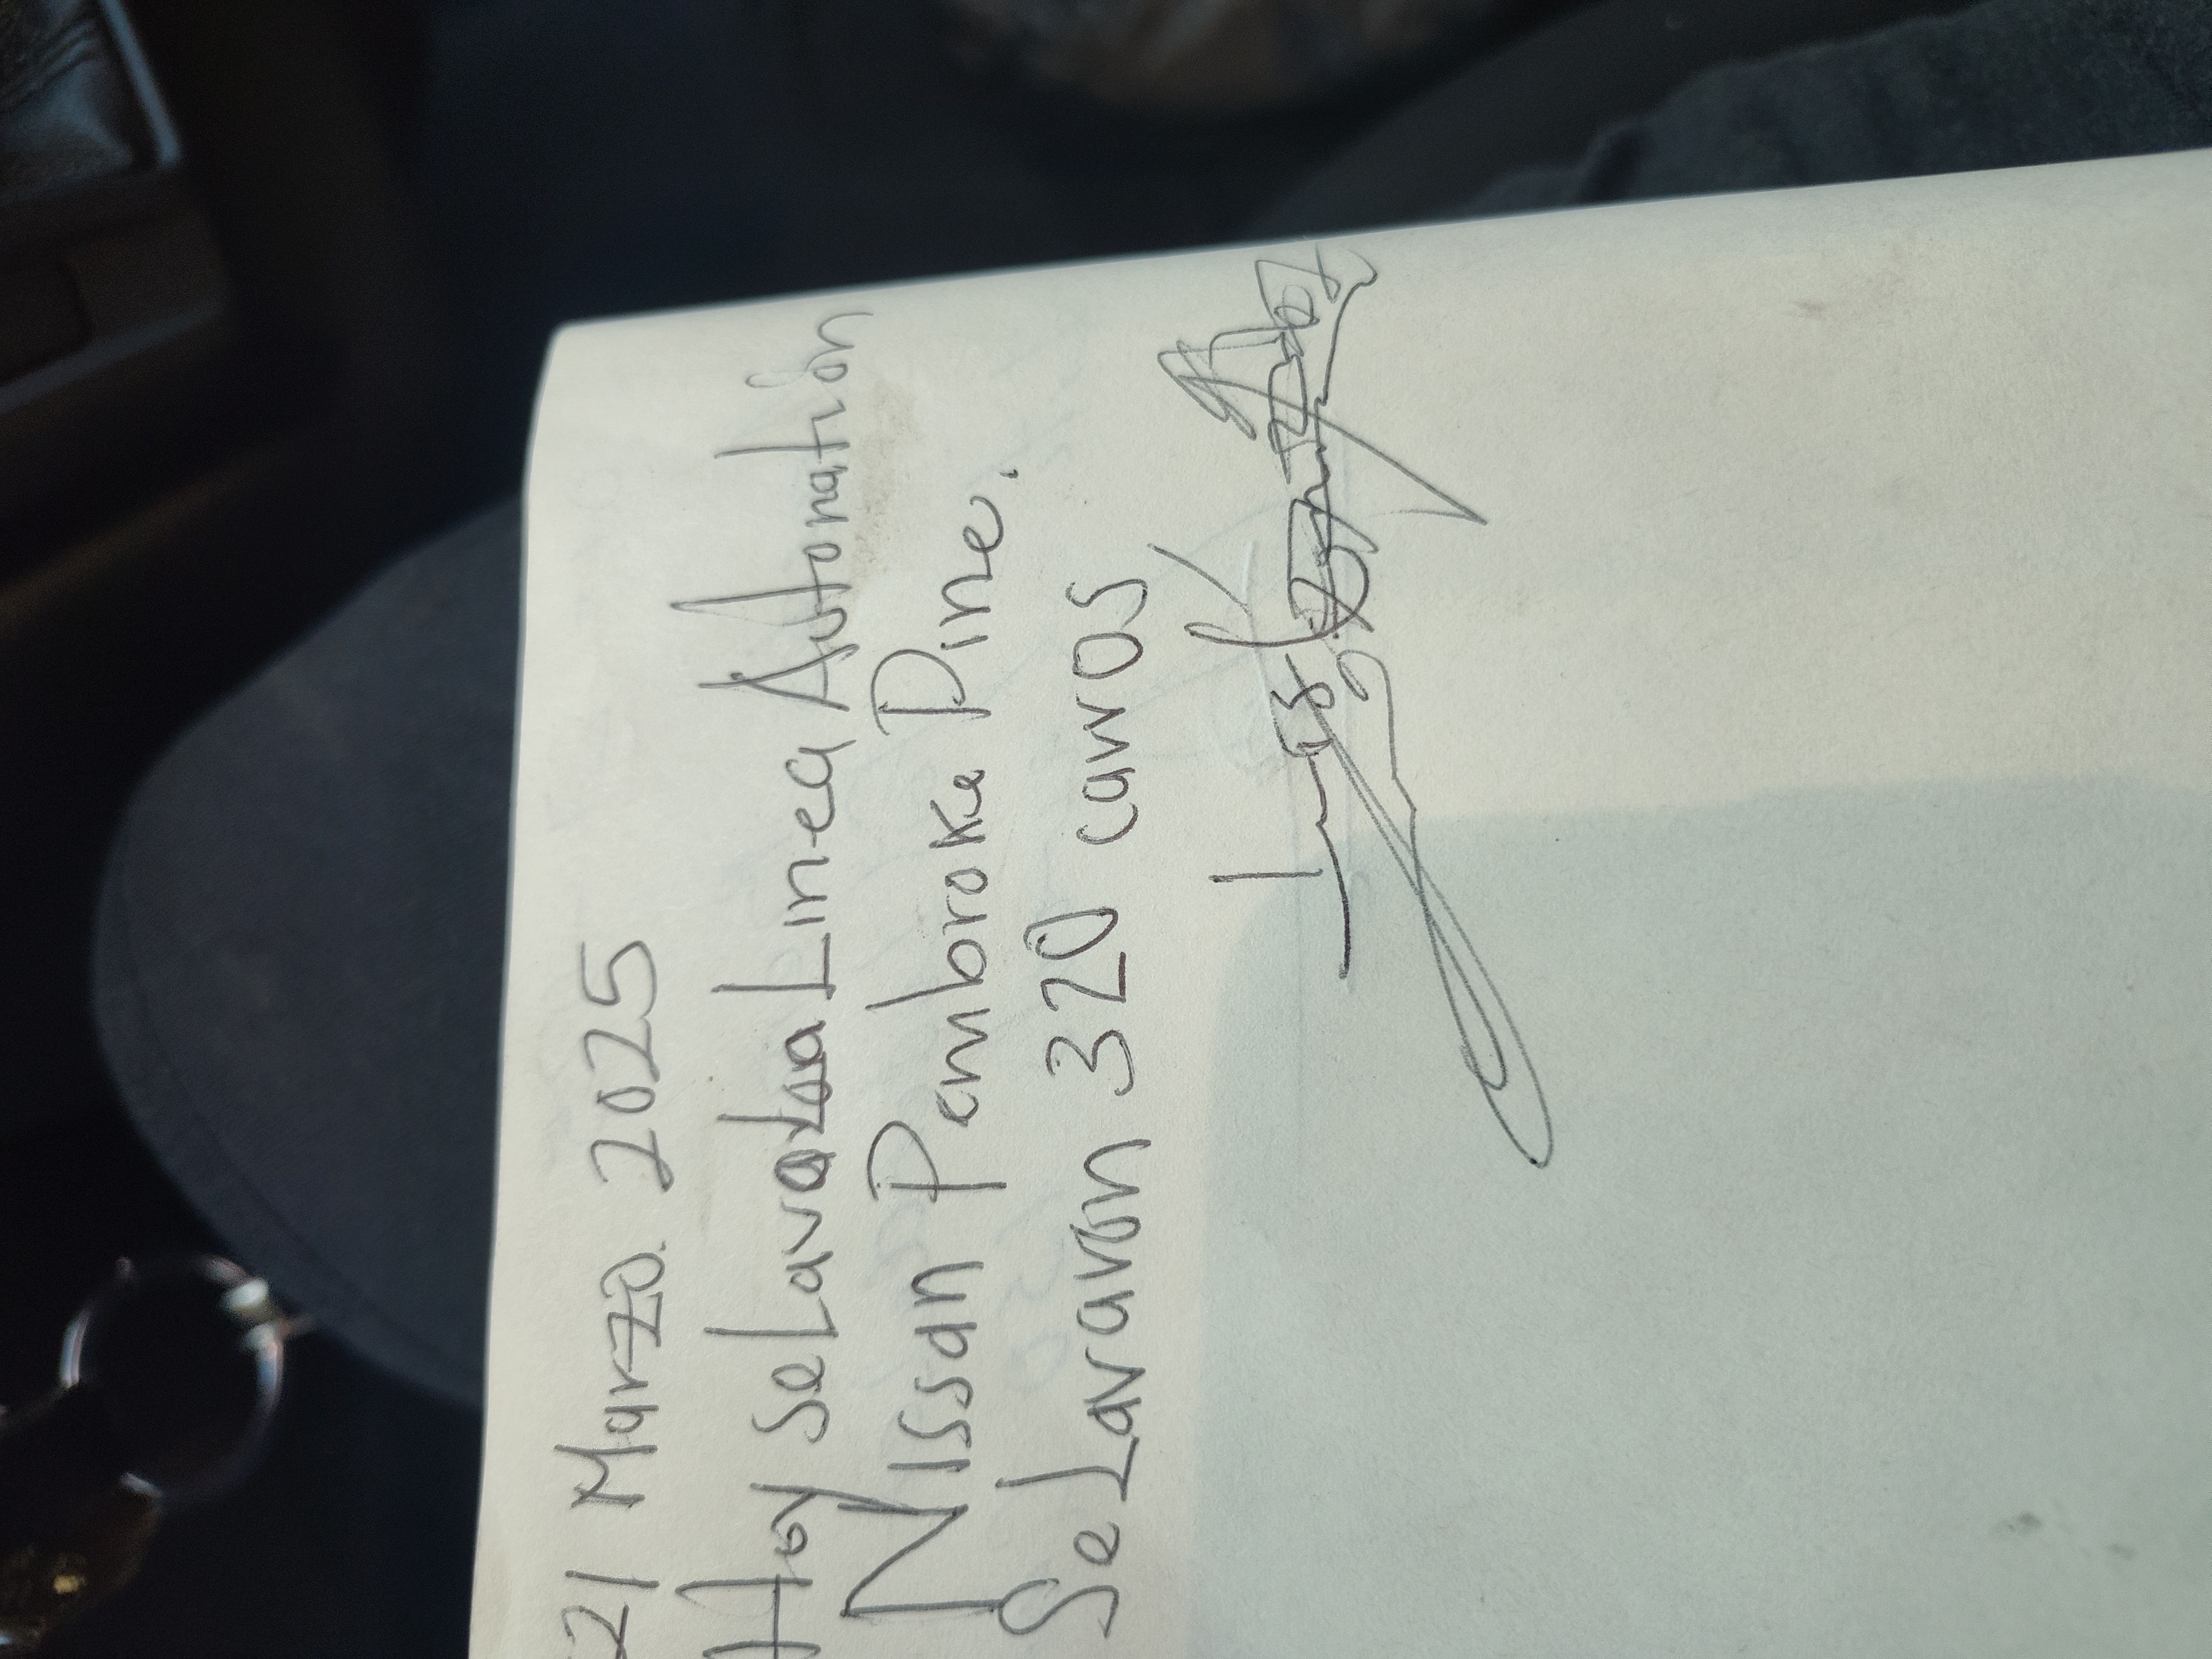 21 Marzo. 2025
Hoy se Lavo La Linea Automation
Nissan Pembroke Pine.
Se Lavaron 320 carros